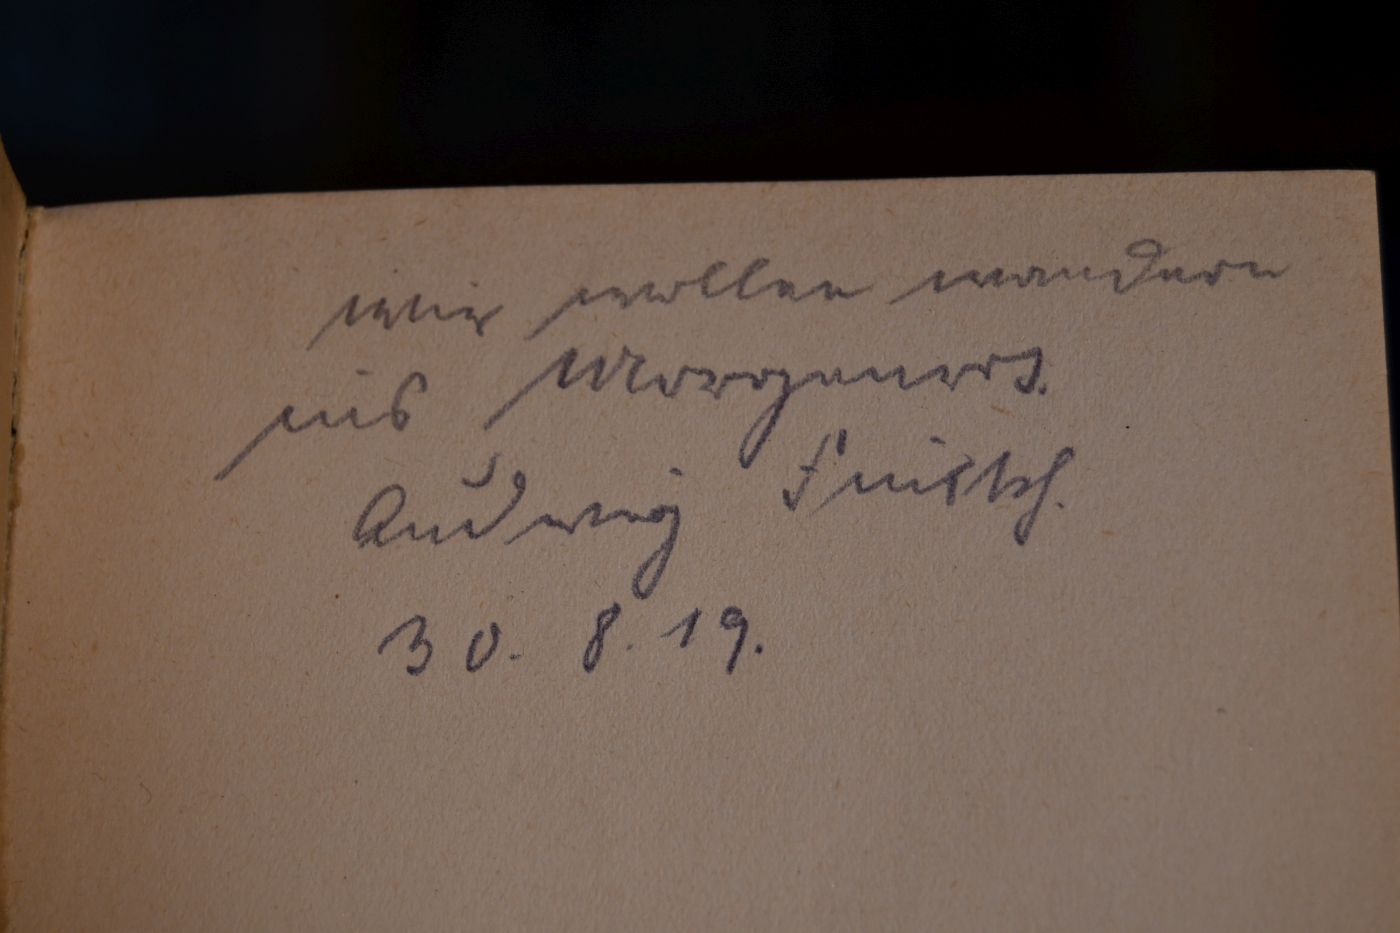 wir wollen wandern
ins Morgenrot.
Ludwig Finckh.
30. 8. 19.